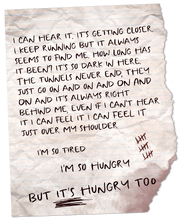 I CAN HEAR IT. IT'S GETTING CLOSER.
I KEEP RUNNING BUT IT ALWAYS
SEEMS TO FIND ME. HOW LONG HAS
IT BEEN? IT'S SO DARK IN HERE.
THE TUNNELS NEVER END, THEY
JUST GO ON AND ON AND ON AND
ON AND IT'S ALWAYS RIGHT
BEHIND ME, EVEN IF I CAN'T HEAR
IT I CAN FEEL IT I CAN FEEL IT
JUST OVER MY SHOULDER
I'M SO TIRED
I'M SO HUNGRY
BUT IT'S HUNGRY TOO